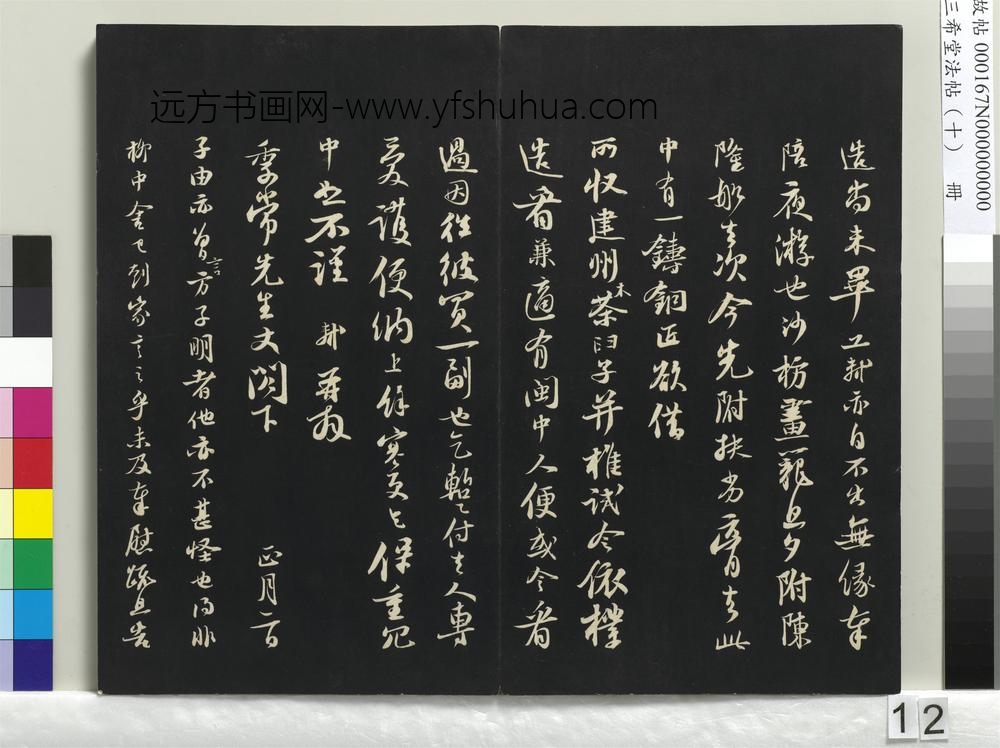 故帖 000167N000000000
三希堂法帖（十） 册
远方书画网-www.yfshuhua.com
造尚未畢工軾亦自不出無緣奉
陪夜遊也沙枋畫籠旦夕附陳
隆船去次今先附扶劣膏去此
中有一鑄銅匠欲借
所收建州木茶臼子并椎試令依樣
造看兼適有閩中人便或令看
過因往彼買一副也乞暫付去人專
愛護便納上餘寒更乞保重冗
中恕不謹 軾再拜
季常先生丈閣下 正月二日
子由亦曾言方子明者他亦不甚怪也得非
柳中舍已到家言之乎未及奉慰疏且告
12